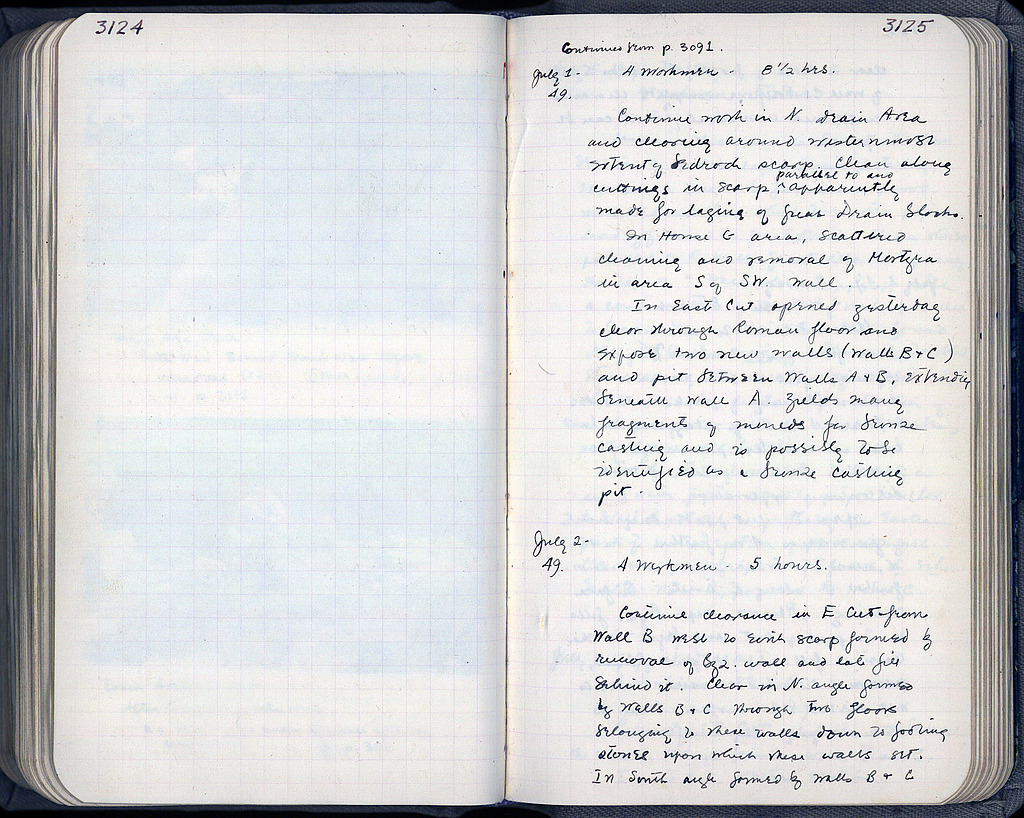 3124
3125
Continued from p. 3091.
July 1 - 4 Workmen - 8 1/2 hrs.
49.
Continue work in N. Drain Area
and clearing around westernmost
extent of bedrock scarp. Clean along
cuttings in scarp, parallel to and apparently
made for laying of Great Drain blocks.
In House G area, scattered
cleaning and removal of
in area S of SW. Wall.
In East Cut opened yesterday
clear through Roman floor and
expose two new walls (Walls B + C)
and pit between Walls A + B, extending
beneath Wall A. Yields many
fragments of moulds for bronze
casting and is possibly to be
identified as a bronze casting
pit.
July 2 -
49. 4 Workmen - 5 hours.
Continue clearance in E Cut from
Wall B west to earth scarp formed by
removal of Byz. wall and late fill
behind it. Clear in N. angle formed
by Walls B + C through two floors
belonging to these walls down to footing
stones upon which these walls set.
In South angle formed by walls B + C